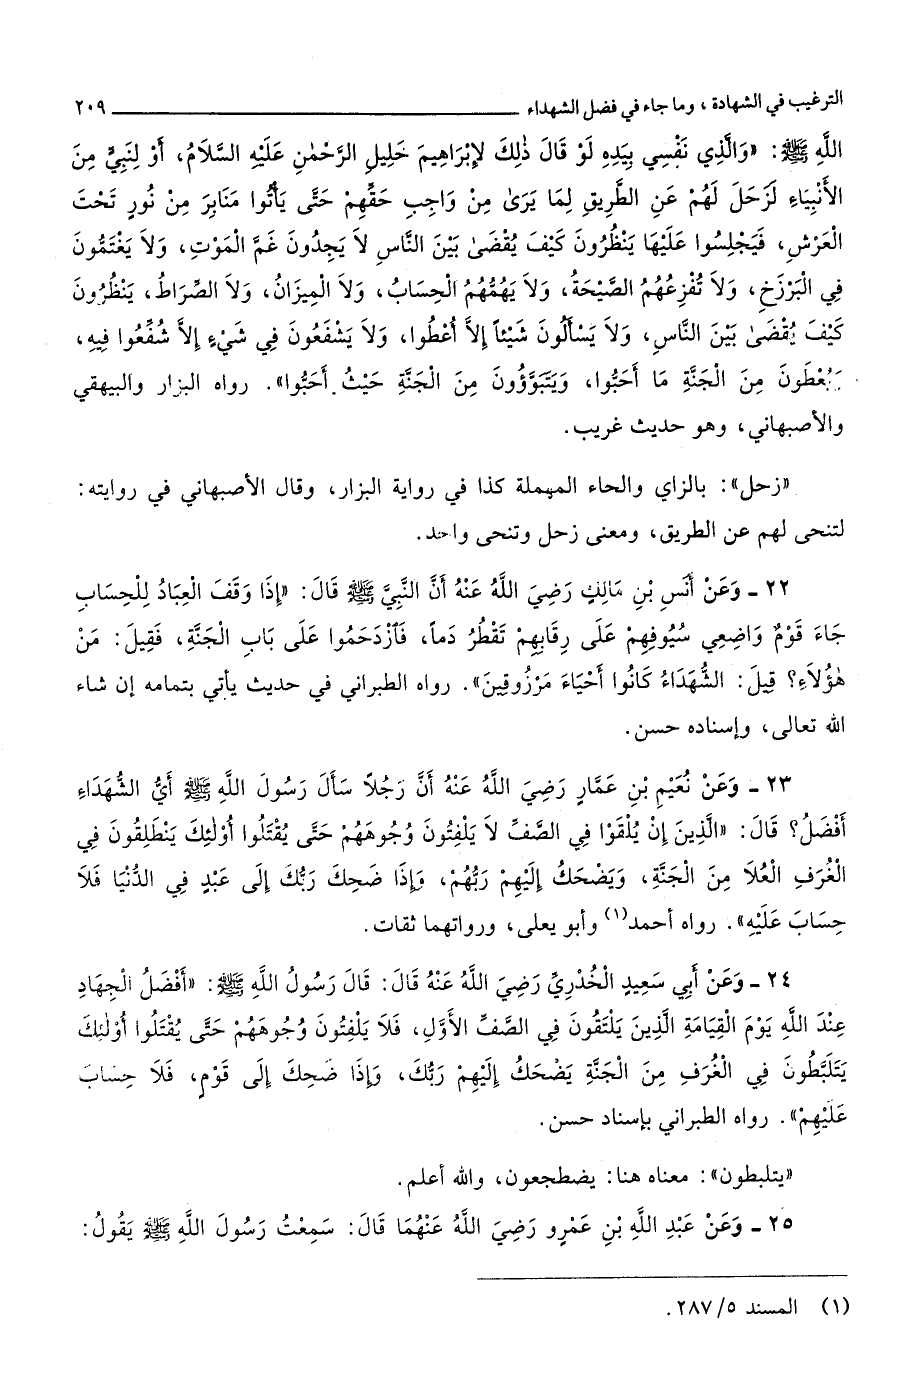 الترغيب في الشهادة، وما جاء في فضل الشهداء ٢٠٩
اللَّهِ ﷺ: «وَالَّذِي نَفْسِي بِيَدِهِ لَوْ قَالَ ذٰلِكَ لإِبْرَاهِيمَ خَلِيلِ الرَّحْمٰنِ عَلَيْهِ السَّلَامُ، أَوْ لِنَبِيٍّ مِنَ
الأَنْبِيَاءِ لَزَحَلَ لَهُمْ عَنِ الطَّرِيقِ لِمَا يَرَىٰ مِنْ وَاجِبِ حَقِّهِمْ حَتَّى يَأْتُوا مَنَابِرَ مِنْ نُورٍ تَحْتَ
الْعَرْشِ، فَيَجْلِسُوا عَلَيْهَا يَنْظُرُونَ كَيْفَ يُقْضَىٰ بَيْنَ النَّاسِ لاَ يَجِدُونَ غَمَّ الْمَوْتِ، وَلاَ يَغْتَمُّونَ
فِي الْبَرْزَخِ، وَلاَ تُفْزِعُهُمُ الصَّيْحَةُ، وَلاَ يَهُمُّهُمُ الْحِسَابُ، وَلاَ الْمِيزَانُ، وَلاَ الصِّرَاطُ، يَنْظُرُونَ
كَيْفَ يُقْضَىٰ بَيْنَ النَّاسِ، وَلاَ يَسْأَلُونَ شَيْئاً إِلاَّ أُعْطُوا، وَلاَ يَشْفَعُونَ فِي شَيْءٍ إِلاَّ شُفِّعُوا فِيهِ،
وَيُعْطَونَ مِنَ الْجَنَّةِ مَا أَحَبُّوا، وَيَتَبَوَّؤُونَ مِنَ الْجَنَّةِ حَيْثُ أَحَبُّوا». رواه البزار والبيهقي
والأصبهاني، وهو حديث غريب.
«زحل»: بالزاي والحاء المهملة كذا في رواية البزار، وقال الأصبهاني في روايته:
لتنحى لهم عن الطريق، ومعنى زحل وتنحى واحد.
٢٢ - وَعَنْ أَنَسِ بْنِ مَالِكٍ رَضِيَ اللَّهُ عَنْهُ أَنَّ النَّبِيَّ ﷺ قَالَ: «إِذَا وَقَفَ الْعِبَادُ لِلْحِسَابِ
جَاءَ قَوْمٌ وَاضِعِي سُيُوفِهِمْ عَلَى رِقَابِهِمْ تَقْطُرُ دَماً، فَٱزْدَحَمُوا عَلَى بَابِ الْجَنَّةِ، فَقِيلَ: مَنْ
هٰؤُلاَءِ؟ قِيلَ: الشُّهَدَاءُ كَانُوا أَحْيَاءَ مَرْزُوقِينَ». رواه الطبراني في حديث يأتي بتمامه إن شاء
الله تعالى، وإسناده حسن.
٢٣ - وَعَنْ نُعَيْمِ بْنِ عَمَّارٍ رَضِيَ اللَّهُ عَنْهُ أَنَّ رَجُلاً سَأَلَ رَسُولَ اللَّهِ ﷺ أَيُّ الشُّهَدَاءِ
أَفْضَلُ؟ قَالَ: «الَّذِينَ إِنْ يُلْقَوْا فِي الصَّفِّ لاَ يَلْفِتُونَ وُجُوهَهُمْ حَتَّى يُقْتَلُوا أُوْلٰئِكَ يَنْطَلِقُونَ فِي
الْغُرَفِ الْعُلاَ مِنَ الْجَنَّةِ، وَيَضْحَكُ إِلَيْهِمْ رَبُّهُمْ، وَإِذَا ضَحِكَ رَبُّكَ إِلَى عَبْدٍ فِي الدُّنْيَا فَلاَ
حِسَابَ عَلَيْهِ». رواه أحمد(١) وأبو يعلى، ورواتهما ثقات.
٢٤ - وَعَنْ أَبِي سَعِيدٍ الْخُدْرِيِّ رَضِيَ اللَّهُ عَنْهُ قَالَ: قَالَ رَسُولُ اللَّهِ ﷺ: «أَفْضَلُ الْجِهَادِ
عِنْدَ اللَّهِ يَوْمَ الْقِيَامَةِ الَّذِينَ يَلْتَقُونَ فِي الصَّفِّ الأَوَّلِ، فَلاَ يَلْفِتُونَ وُجُوهَهُمْ حَتَّى يُقْتَلُوا أُوْلٰئِكَ
يَتَلَبَّطُونَ فِي الْغُرَفِ مِنَ الْجَنَّةِ يَضْحَكُ إِلَيْهِمْ رَبُّكَ، وَإِذَا ضَحِكَ إِلَى قَوْمٍ، فَلاَ حِسَابَ
عَلَيْهِمْ». رواه الطبراني بإسناد حسن.
«يتلبطون»: معناه هنا: يضطجعون، والله أعلم.
٢٥ - وَعَنْ عَبْدِ اللَّهِ بْنِ عَمْرٍو رَضِيَ اللَّهُ عَنْهُمَا قَالَ: سَمِعْتُ رَسُولَ اللَّهِ ﷺ يَقُولُ:
(١) المسند ٢٨٧/٥.